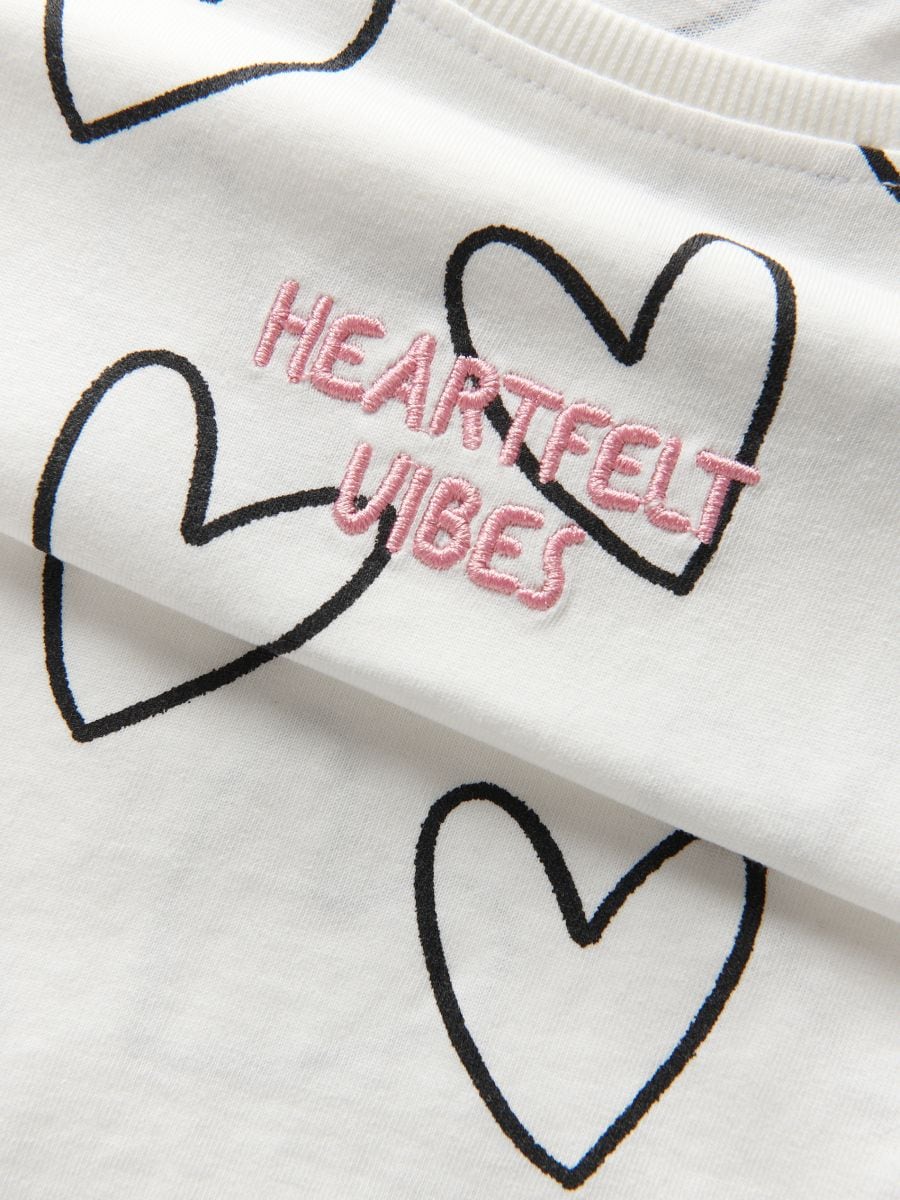 HEARTFELT
VIBES